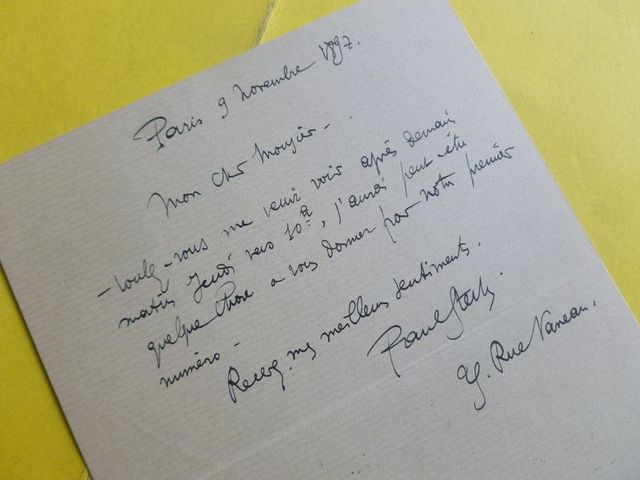 Paris 9 novembre 1897.
Mon cher Monsieur -
- Voulez-vous me venir voir après demain
matin Jeudi vers 10 h, j'aurai peut-être
quelque chose a vous donner pour notre premier
numéro -
Recevez mes meilleurs sentiments.
Paul
Rue Vaneau.